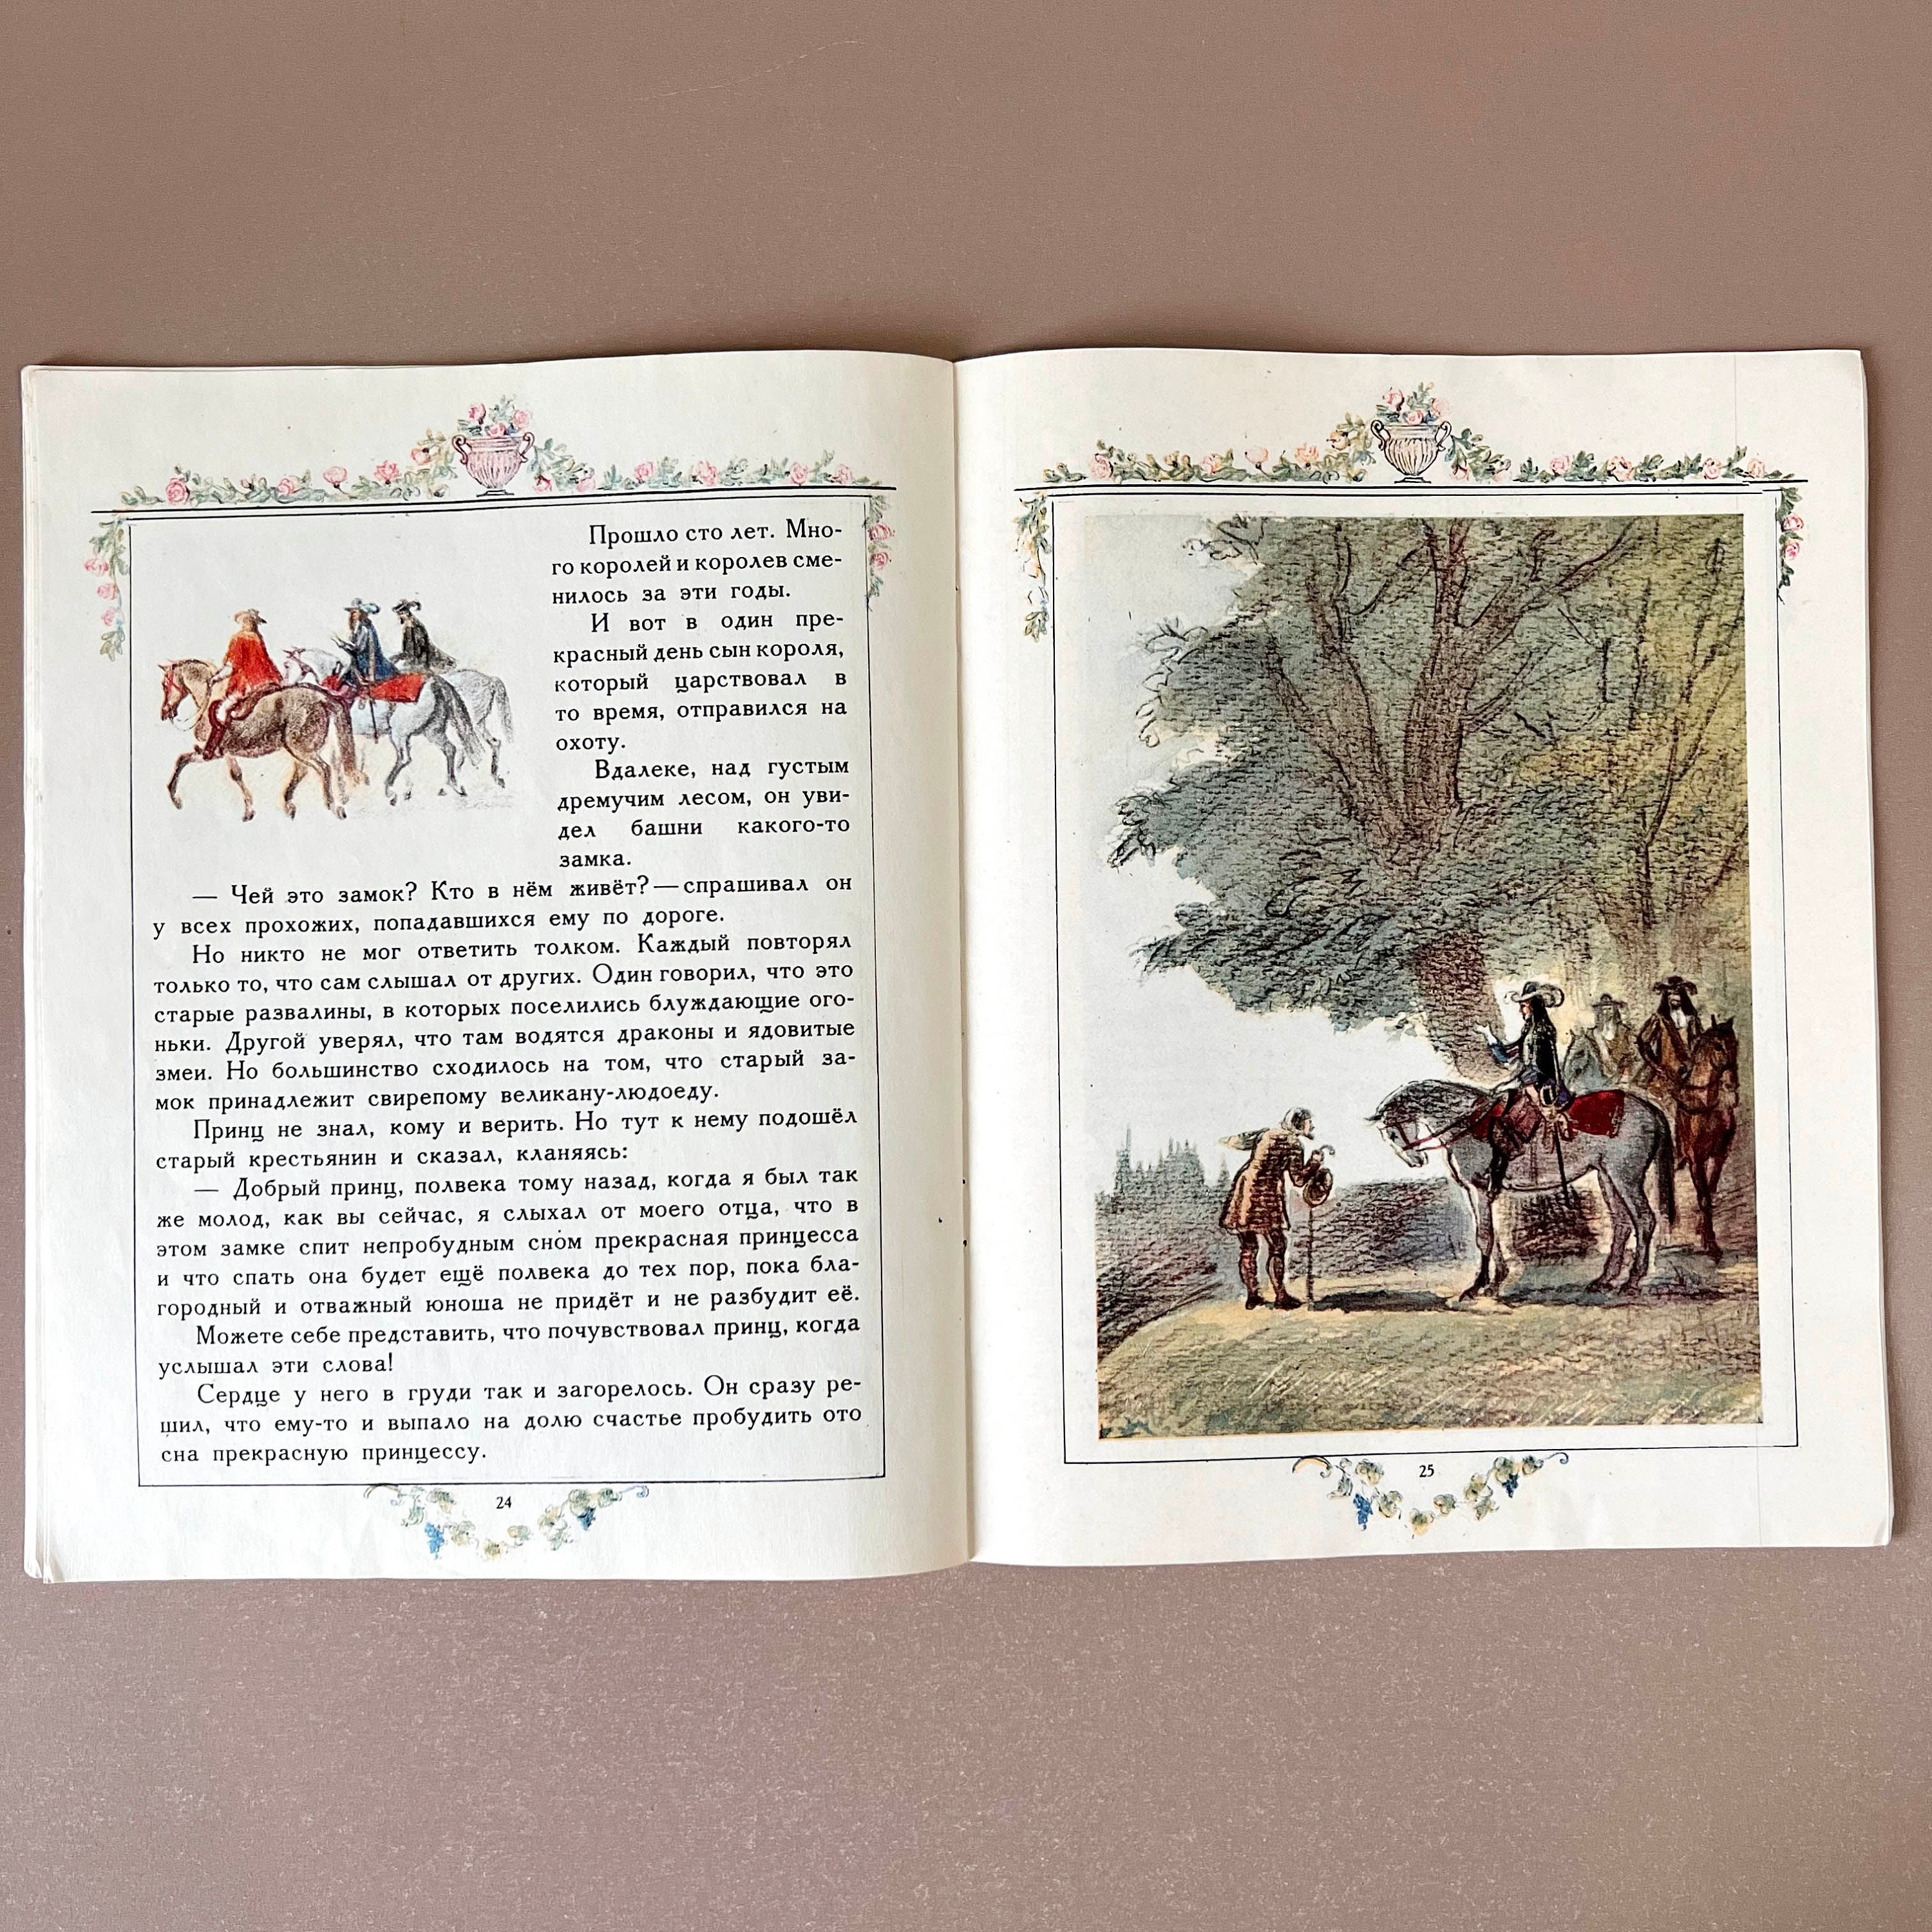 Прошло сто лет. Мно-
го королей и королев сме-
нилось за эти годы.
И вот в один пре-
красный день сын короля,
который царствовал в
то время, отправился на
охоту.
Вдалеке, над густым
дремучим лесом, он уви-
дел башни какого-то
замка.
— Чей это замок? Кто в нём живёт? — спрашивал он
у всех прохожих, попадавшихся ему по дороге.
Но никто не мог ответить толком. Каждый повторял
только то, что сам слышал от других. Один говорил, что это
старые развалины, в которых поселились блуждающие ого-
ньки. Другой уверял, что там водятся драконы и ядовитые
змеи. Но большинство сходилось на том, что старый за-
мок принадлежит свирепому великану-людоеду.
Принц не знал, кому и верить. Но тут к нему подошёл
старый крестьянин и сказал, кланяясь:
— Добрый принц, полвека тому назад, когда я был так
же молод, как вы сейчас, я слыхал от моего отца, что в
этом замке спит непробудным сном прекрасная принцесса
и что спать она будет ещё полвека до тех пор, пока бла-
городный и отважный юноша не придёт и не разбудит её.
Можете себе представить, что почувствовал принц, когда
услышал эти слова!
Сердце у него в груди так и загорелось. Он сразу ре-
шил, что ему-то и выпало на долю счастье пробудить ото
сна прекрасную принцессу.
24
25